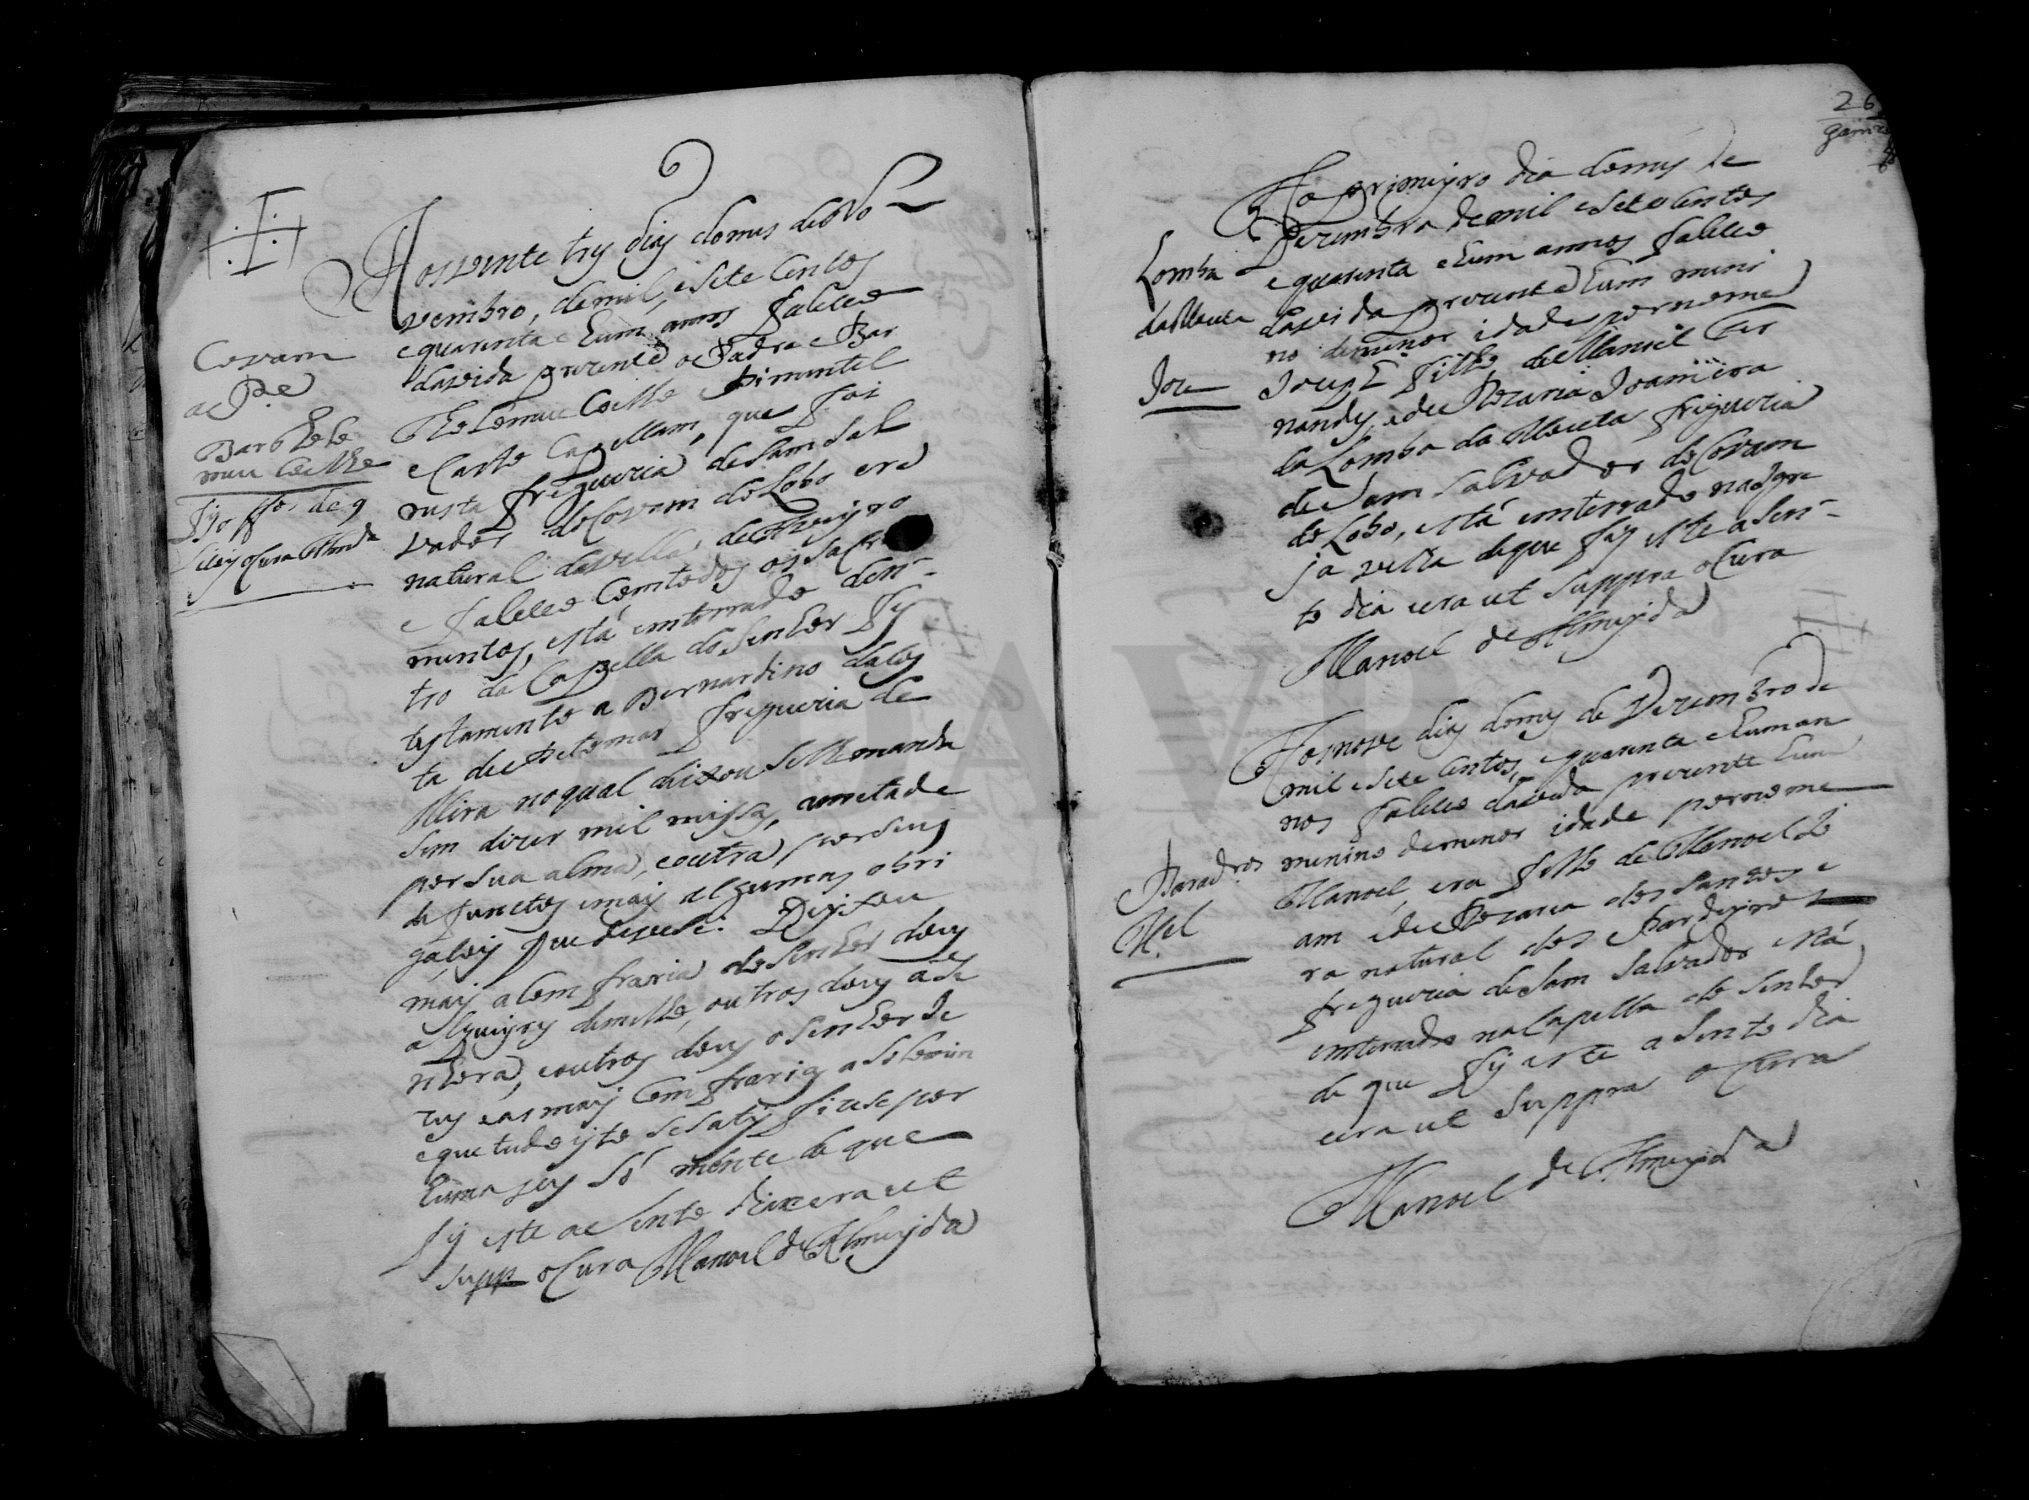 Aos vinte trẽs dias do mes de No
vembro, de mil, e sete centos
e quarenta e hum annos faleceo
da vida prezente o Padre Bar
tholomeu Coelho Pimentel
e Castro Capellam, que foi
nesta freguezia de Sam Sal
vador de Covam do Lobo era
natural da villa, de Aveyro
e faleceo com todos os sacra
mentos, está enterrado den
tro da Capella do Senhor fes
testamento a Bernardino da Cos
ta de Petomar freguezia de
Mira no qual deixou se mandas
sem dizer mil missas, a metade
por sua alma, e outra por seus
defunctos e mais algumas obri
gações que
mais a Comfraria do Senhor dous
alqueyres de milho, outros dous a Se
nhora, e outros dous o Senhor de
e as mais Comfrarias
e que tudo isto se satisfizese por
huma ves só mente de que
fis este acento dia e era ut
supp o Cura Manoel de Almeyda
Covam
o Pe
Barthole
meu Coelho
26
Ao primeyro dia do mes de
Dezembro de mil e sete centos
e quarenta e hum annos faleceo
da vida prezente hum meni
no de menor idade por nome
Joseph filho de Manoel Fer
nandes e de Mezaria Joam era
da Lomba da Meceta freguezia
de Sam Salvador de Covam
do Lobo, está enterrado na Igre
ja velha de que fis este asen
to dia era ut suppra o Cura
Manoel de Almeyda
Lomba
da Meceta
Joze
Aos nove dias do mes de Dezembro de
mil e sete centos, e quarenta e hum an
nos faleceo da vida prezente hum
menino de menor idade por nome
Manoel, era filho de Manoel Jo
am e de Mezaria dos Santos e
ra natural dos Pardeyros
freguezia de Sam Salvador está
enterrado na Capella do Senhor
de que fis este asento dia
era ut suppra o Cura
Manoel de Almeyda
Parad.ros
Mel